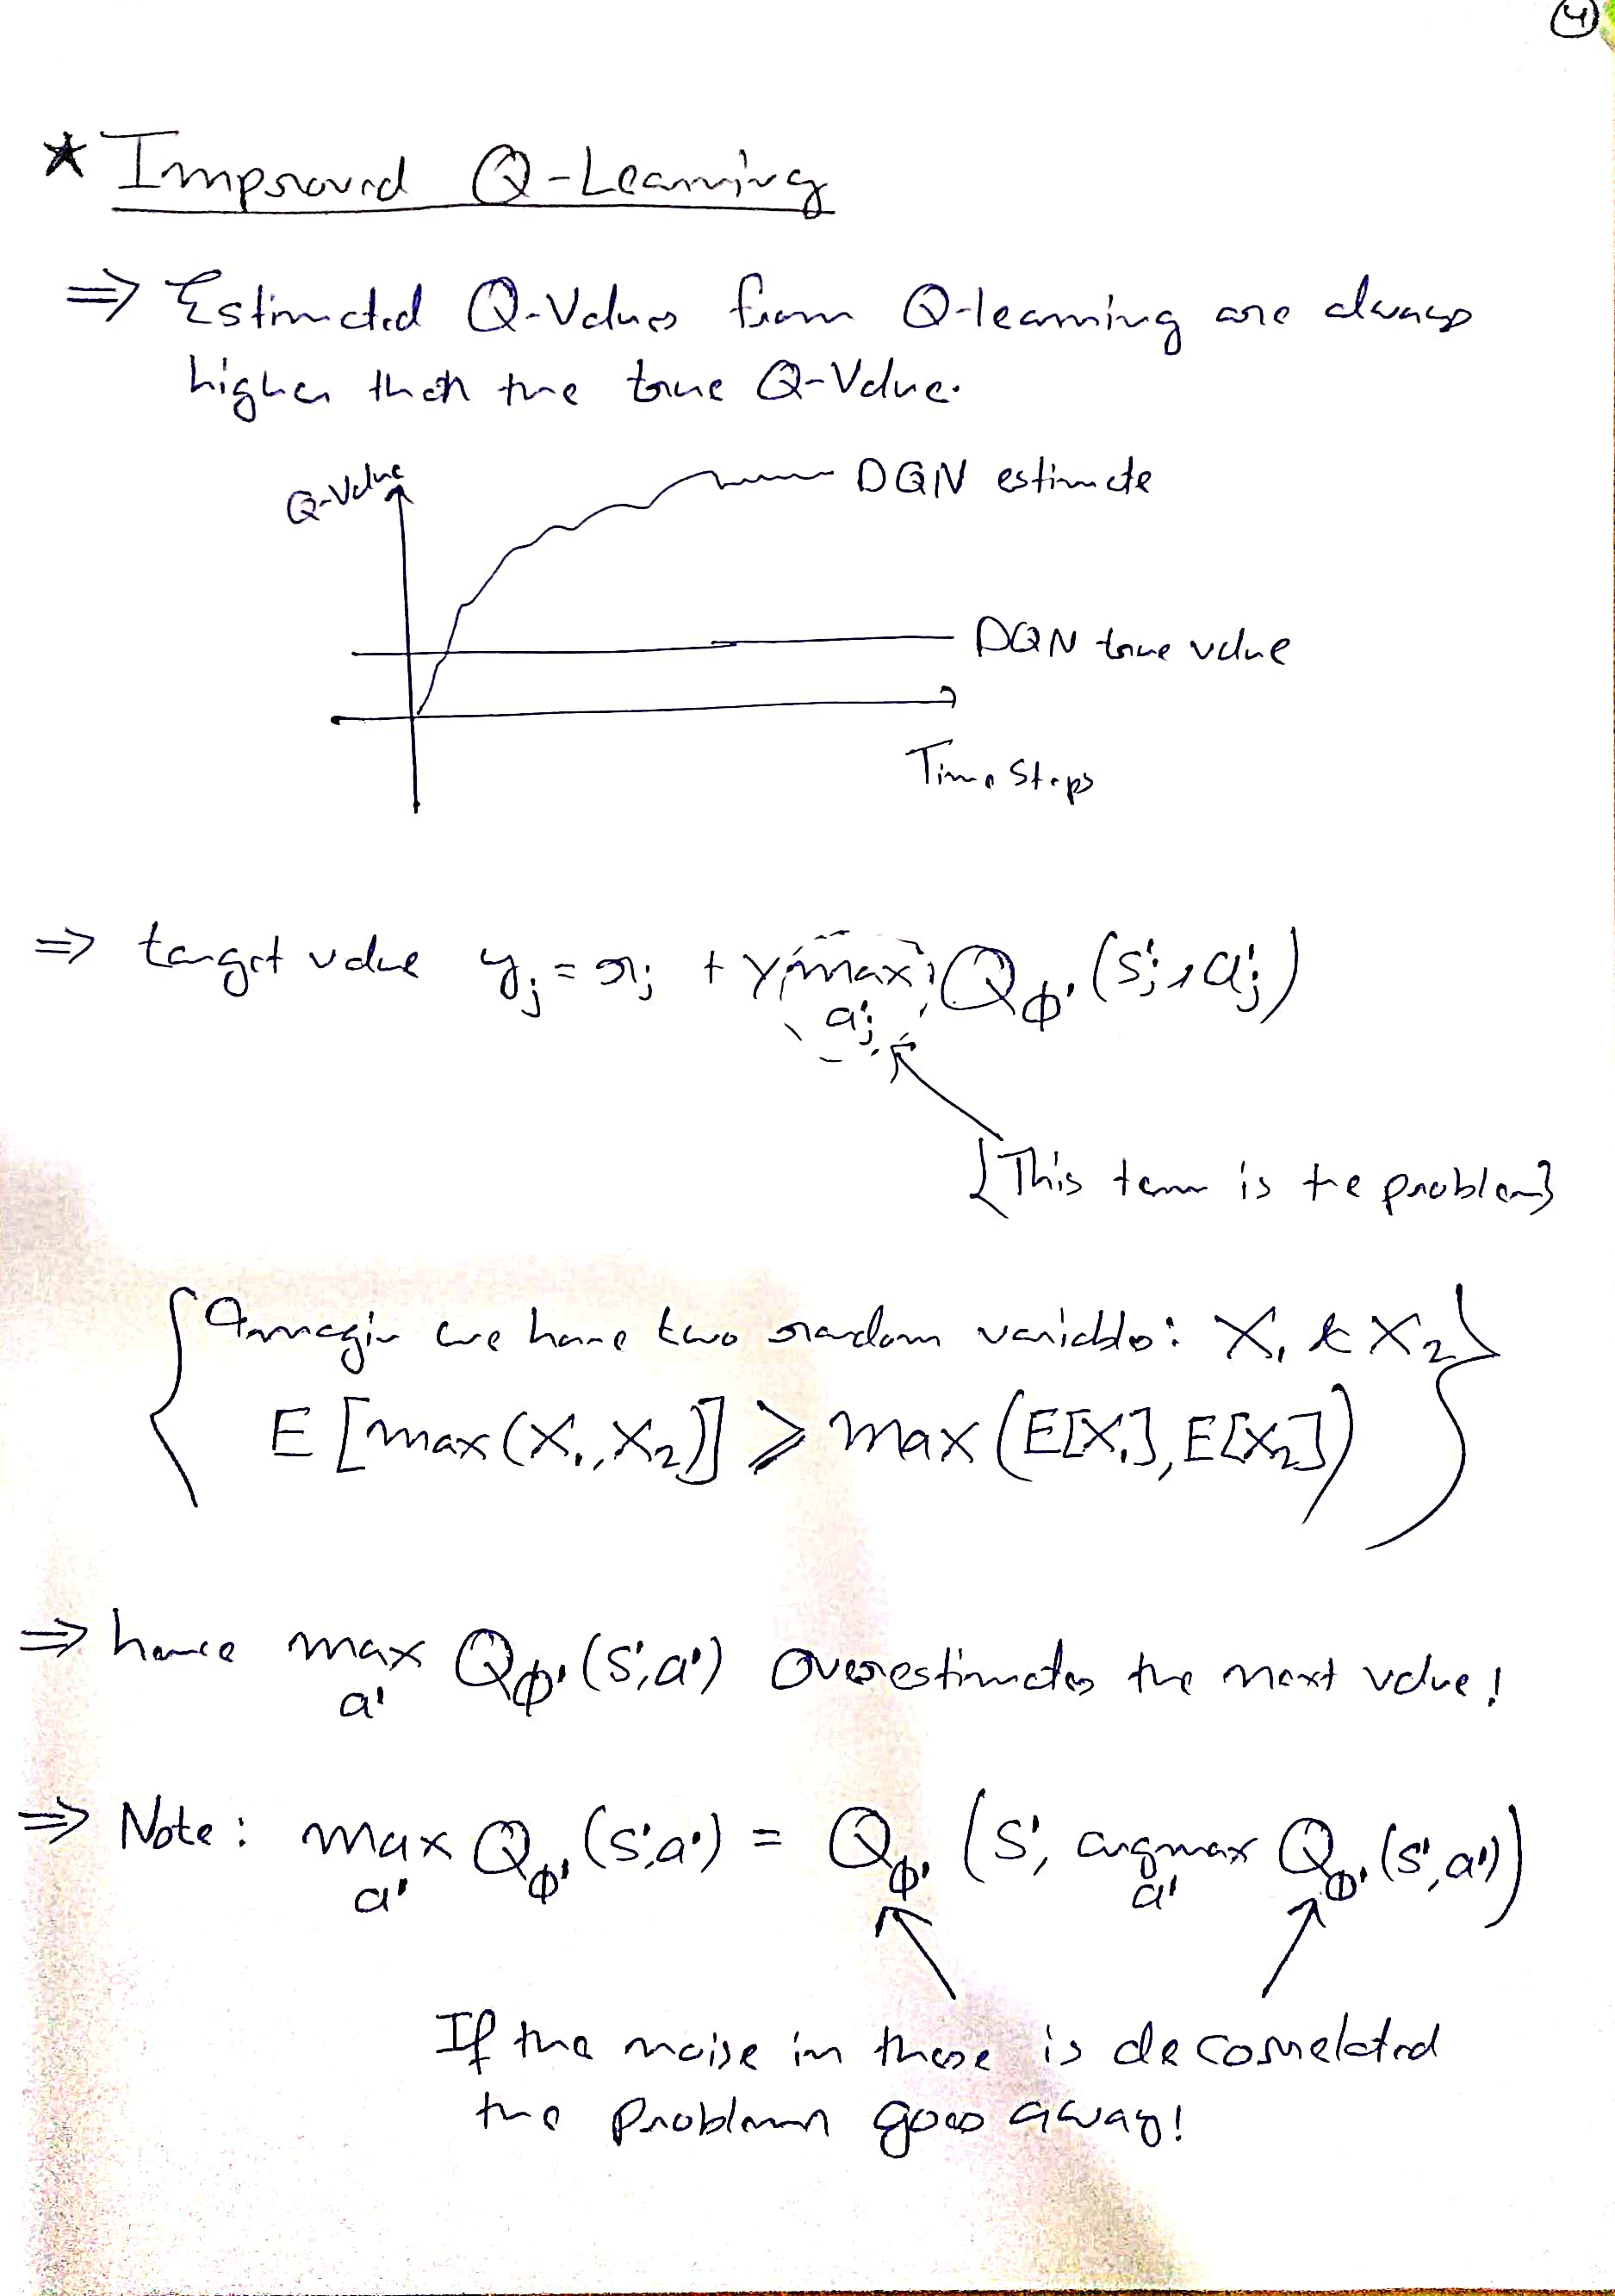 4
* Improved Q-Learning
⇒ Estimated Q-Values from Q-learning are always
higher than the true Q-Value.
Q-Value
DQN estimate
DQN true value
Time Steps
⇒ target value y_j = r_j + γ max_{a'_j} Q_{ϕ'}(s'_j, a'_j)
{This term is the problem}
Imagin we have two random variables: X₁ & X₂
E[max(X₁, X₂)] ⩾ max(E[X₁], E[X₂])
⇒ hence max_{a'} Q_{ϕ'}(s', a') overestimates the next value!
⇒ Note: max_{a'} Q_{ϕ'}(s', a') = Q_{ϕ'}(s', argmax_{a'} Q_{ϕ'}(s', a'))
If the noise in these is decorrelated
the problem goes away!